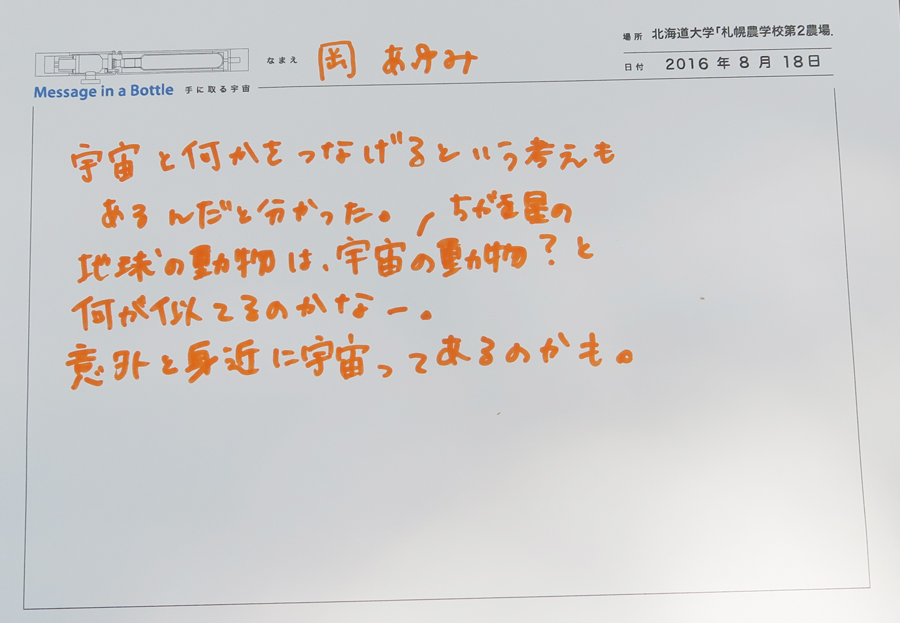 場所 北海道大学「札幌農学校第2農場」
なまえ 岡 あゆみ
日付 2016 年 8 月 18日
Message in a Bottle 手に取る宇宙
宇宙と何かをつなげるという考えも
あるんだと分かった。
ちがう星の
地球の動物は、宇宙の動物?と
何が似てるのかなー。
意外と身近に宇宙ってあるのかも。